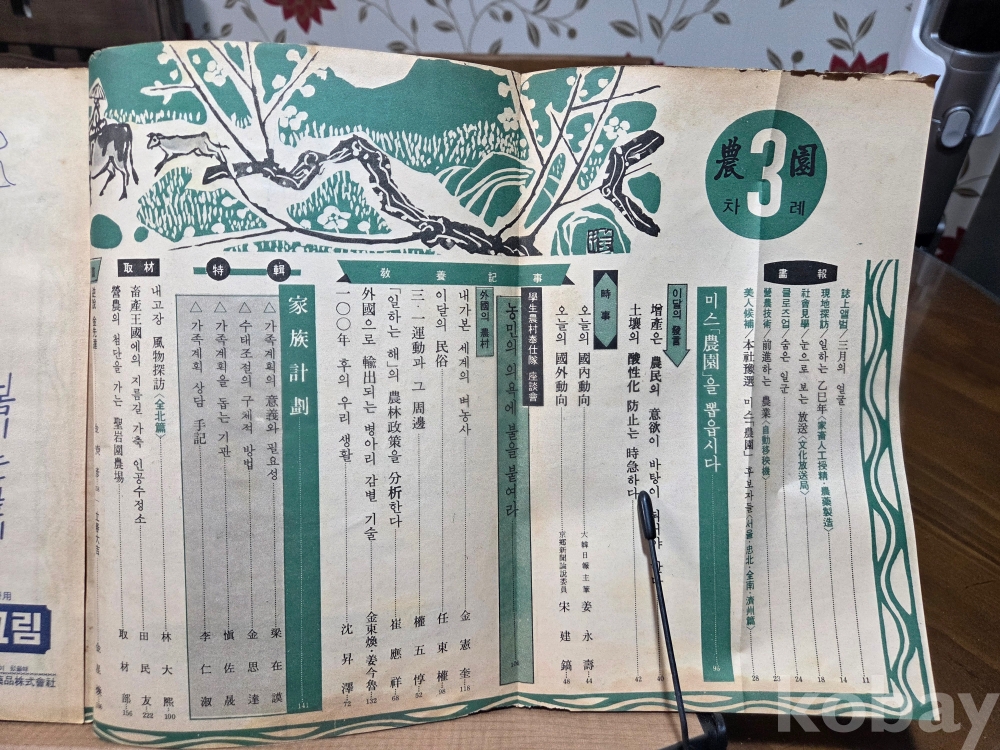 農 3 園
차 례
畫 報
誌上앨범／三月의 얼굴 11
現地探訪／일하는 乙巳年〈家畜人工授精・農藥製造〉 14
社會見學／눈으로 보는 放送〈文化放送局〉 18
클로즈업／숨은 일군 24
營農技術／前進하는 農業〈自動移秧機〉 23
美人候補／本社豫選 미스「農園」 후보자들〈서울・忠北・全南・濟州篇〉 28
미스「農園」을 뽑읍시다 96
이달의 發言
增産은 農民의 意欲이 바탕이 40
土壤의 酸性化 防止는 時急하다 42
時事
오늘의 國內動向 大韓日報主筆 姜永壽 44
오늘의 國外動向 京鄕新聞論說委員 宋建鎬 46
敎養記事
學生農村奉仕隊 座談會
농민의 의욕에 불을 붙여라
外國의 農村
내가본 세계의 벼농사 金憲奎 118
이달의 民俗 任東權 98
三・一運動과 그 周邊 權五惇 52
「일하는 해」의 農林政策을 分析한다 崔應祥 68
外國으로 輸出되는 병아리 감별 기술 金東煥・姜今魯 132
一〇〇年 후의 우리 생활 沈昇澤 72
特輯
家族計劃 141
△ 가족계획의 意義와 필요성 梁在謨
△ 수태조절의 구체적 방법 金思達
△ 가족계획을 돕는 기관 愼佐晟
△ 가족계획 상담 手記 李仁淑
取材
내고장 風物探訪〈全北篇〉 林大熊 100
畜産王國에의 지름길 가축 인공수정소 田民友 222
營農의 첨단을 가는 聖岩園農場 取材部 156
크림
藥品株式会社
kobay